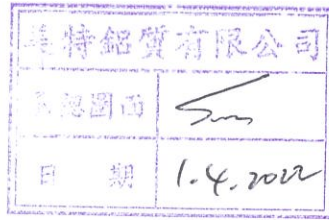 美特鋁質有限公司
承認圖面
日 期 1.4.2022